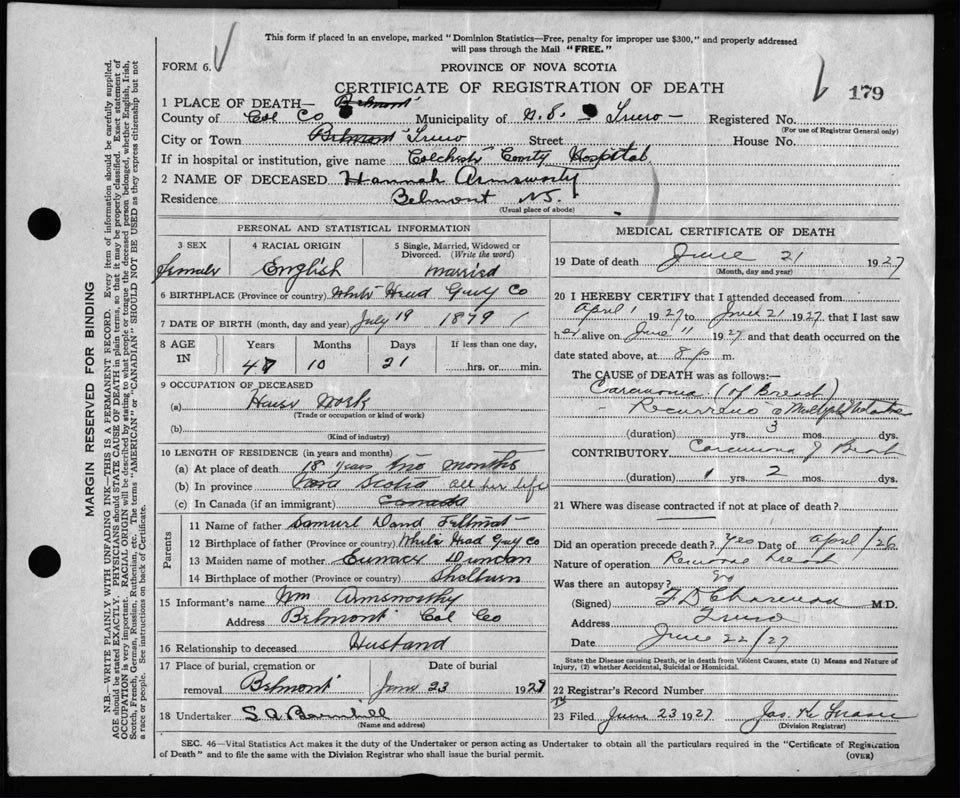 This form if placed in an envelope, marked "Dominion Statistics—Free, penalty for improper use $300," and properly addressed
will pass through the Mail "FREE."
FORM 6.
PROVINCE OF NOVA SCOTIA
CERTIFICATE OF REGISTRATION OF DEATH
179
1 PLACE OF DEATH— Belmont
County of Col Co Municipality of Truro Registered No.
(For use of Registrar General only)
City or Town Belmont Truro Street House No.
If in hospital or institution, give name Colchester County Hospital
2 NAME OF DECEASED Hannah Armsworthy
Residence Belmont N.S.
(Usual place of abode)
PERSONAL AND STATISTICAL INFORMATION
3 SEX 4 RACIAL ORIGIN 5 Single, Married, Widowed or
Divorced. (Write the word)
Female English Married
6 BIRTHPLACE (Province or country) White Head Guy Co
7 DATE OF BIRTH (month, day and year) July 19 1879
8 AGE Years Months Days If less than one day,
IN 47 10 21 hrs. or min.
9 OCCUPATION OF DECEASED
(a) House Work
(Trade or occupation or kind of work)
(b)
(Kind of industry)
10 LENGTH OF RESIDENCE (in years and months)
(a) At place of death 18 years two months
(b) In province Nova Scotia all her life
(c) In Canada (if an immigrant) Canada
Parents
11 Name of father Samuel David
12 Birthplace of father (Province or country) White Head Guy Co
13 Maiden name of mother
14 Birthplace of mother (Province or country) Shelburn
15 Informant's name Wm Armsworthy
Address Belmont Col Co
16 Relationship to deceased Husband
17 Place of burial, cremation or Date of burial
removal Belmont June 23 1927
18 Undertaker S.A. Barnhill
(Name and address)
MEDICAL CERTIFICATE OF DEATH
19 Date of death June 21 1927
(Month, day and year)
20 I HEREBY CERTIFY that I attended deceased from
April 1 1927 to June 21 1927 that I last saw
her alive on June 11 1927 and that death occurred on the
date stated above, at 8 p m.
The CAUSE OF DEATH was as follows:—
Carcinoma (of Breast)
- Recurrence
(duration) yrs. 3 mos. dys.
CONTRIBUTORY Carcinoma of Breast
(duration) 1 yrs. 2 mos. dys.
21 Where was disease contracted if not at place of death?
Did an operation precede death? Yes Date of April /26
Nature of operation Remove breast
Was there an autopsy? no
(Signed) M.D.
Address Truro
Date June 22/27
State the Disease causing Death, or in death from Violent Causes, state (1) Means and Nature of
Injury, (2) whether Accidental, Suicidal or Homicidal.
22 Registrar's Record Number
23 Filed June 23 1927 Jas. K. Fraser
(Division Registrar)
SEC. 46—Vital Statistics Act makes it the duty of the Undertaker or person acting as Undertaker to obtain all the particulars required in the "Certificate of Registration
of Death" and to file the same with the Division Registrar who shall issue the burial permit.
(OVER)
MARGIN RESERVED FOR BINDING
N.B.—WRITE PLAINLY WITH UNFADING INK—THIS IS A PERMANENT RECORD. Every item of information should be carefully supplied.
AGE should be stated EXACTLY. PHYSICIANS should STATE CAUSE OF DEATH in plain terms, so that it may be properly classified. Exact statement of
OCCUPATION is very important. RACIAL ORIGIN will be described by stating to what people or tongue the deceased person belonged, whether English, Irish,
Scotch, French, German, Russian, Ruthenian, etc. The terms "AMERICAN" or "CANADIAN" SHOULD NOT BE USED as they express citizenship but not
a race or people. See instructions on back of Certificate.